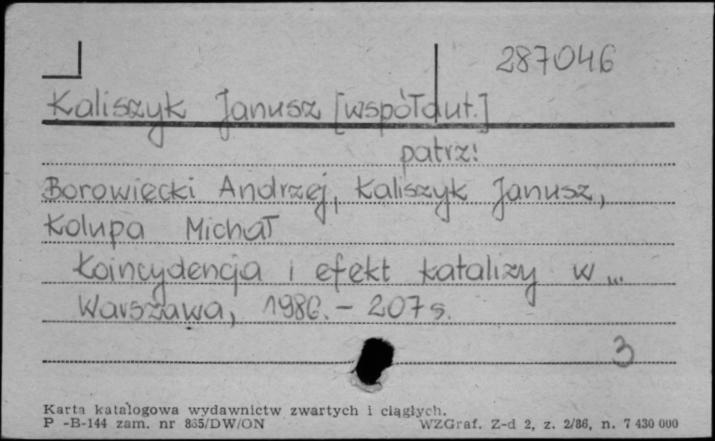 287046
Kaliszyk Janusz [współaut.]
patrz:
Borowiecki Andrzej, Kaliszyk Janusz,
Kolupa Michał
Koincydencja i efekt katalizy w ...
Warszawa, 1986. - 207 s.
3
Karta katalogowa wydawnictw zwartych i ciągłych.
P -B-144 zam. nr 865/DW/ON WZGraf. Z-d 2, z. 2/86, n. 7 430 000